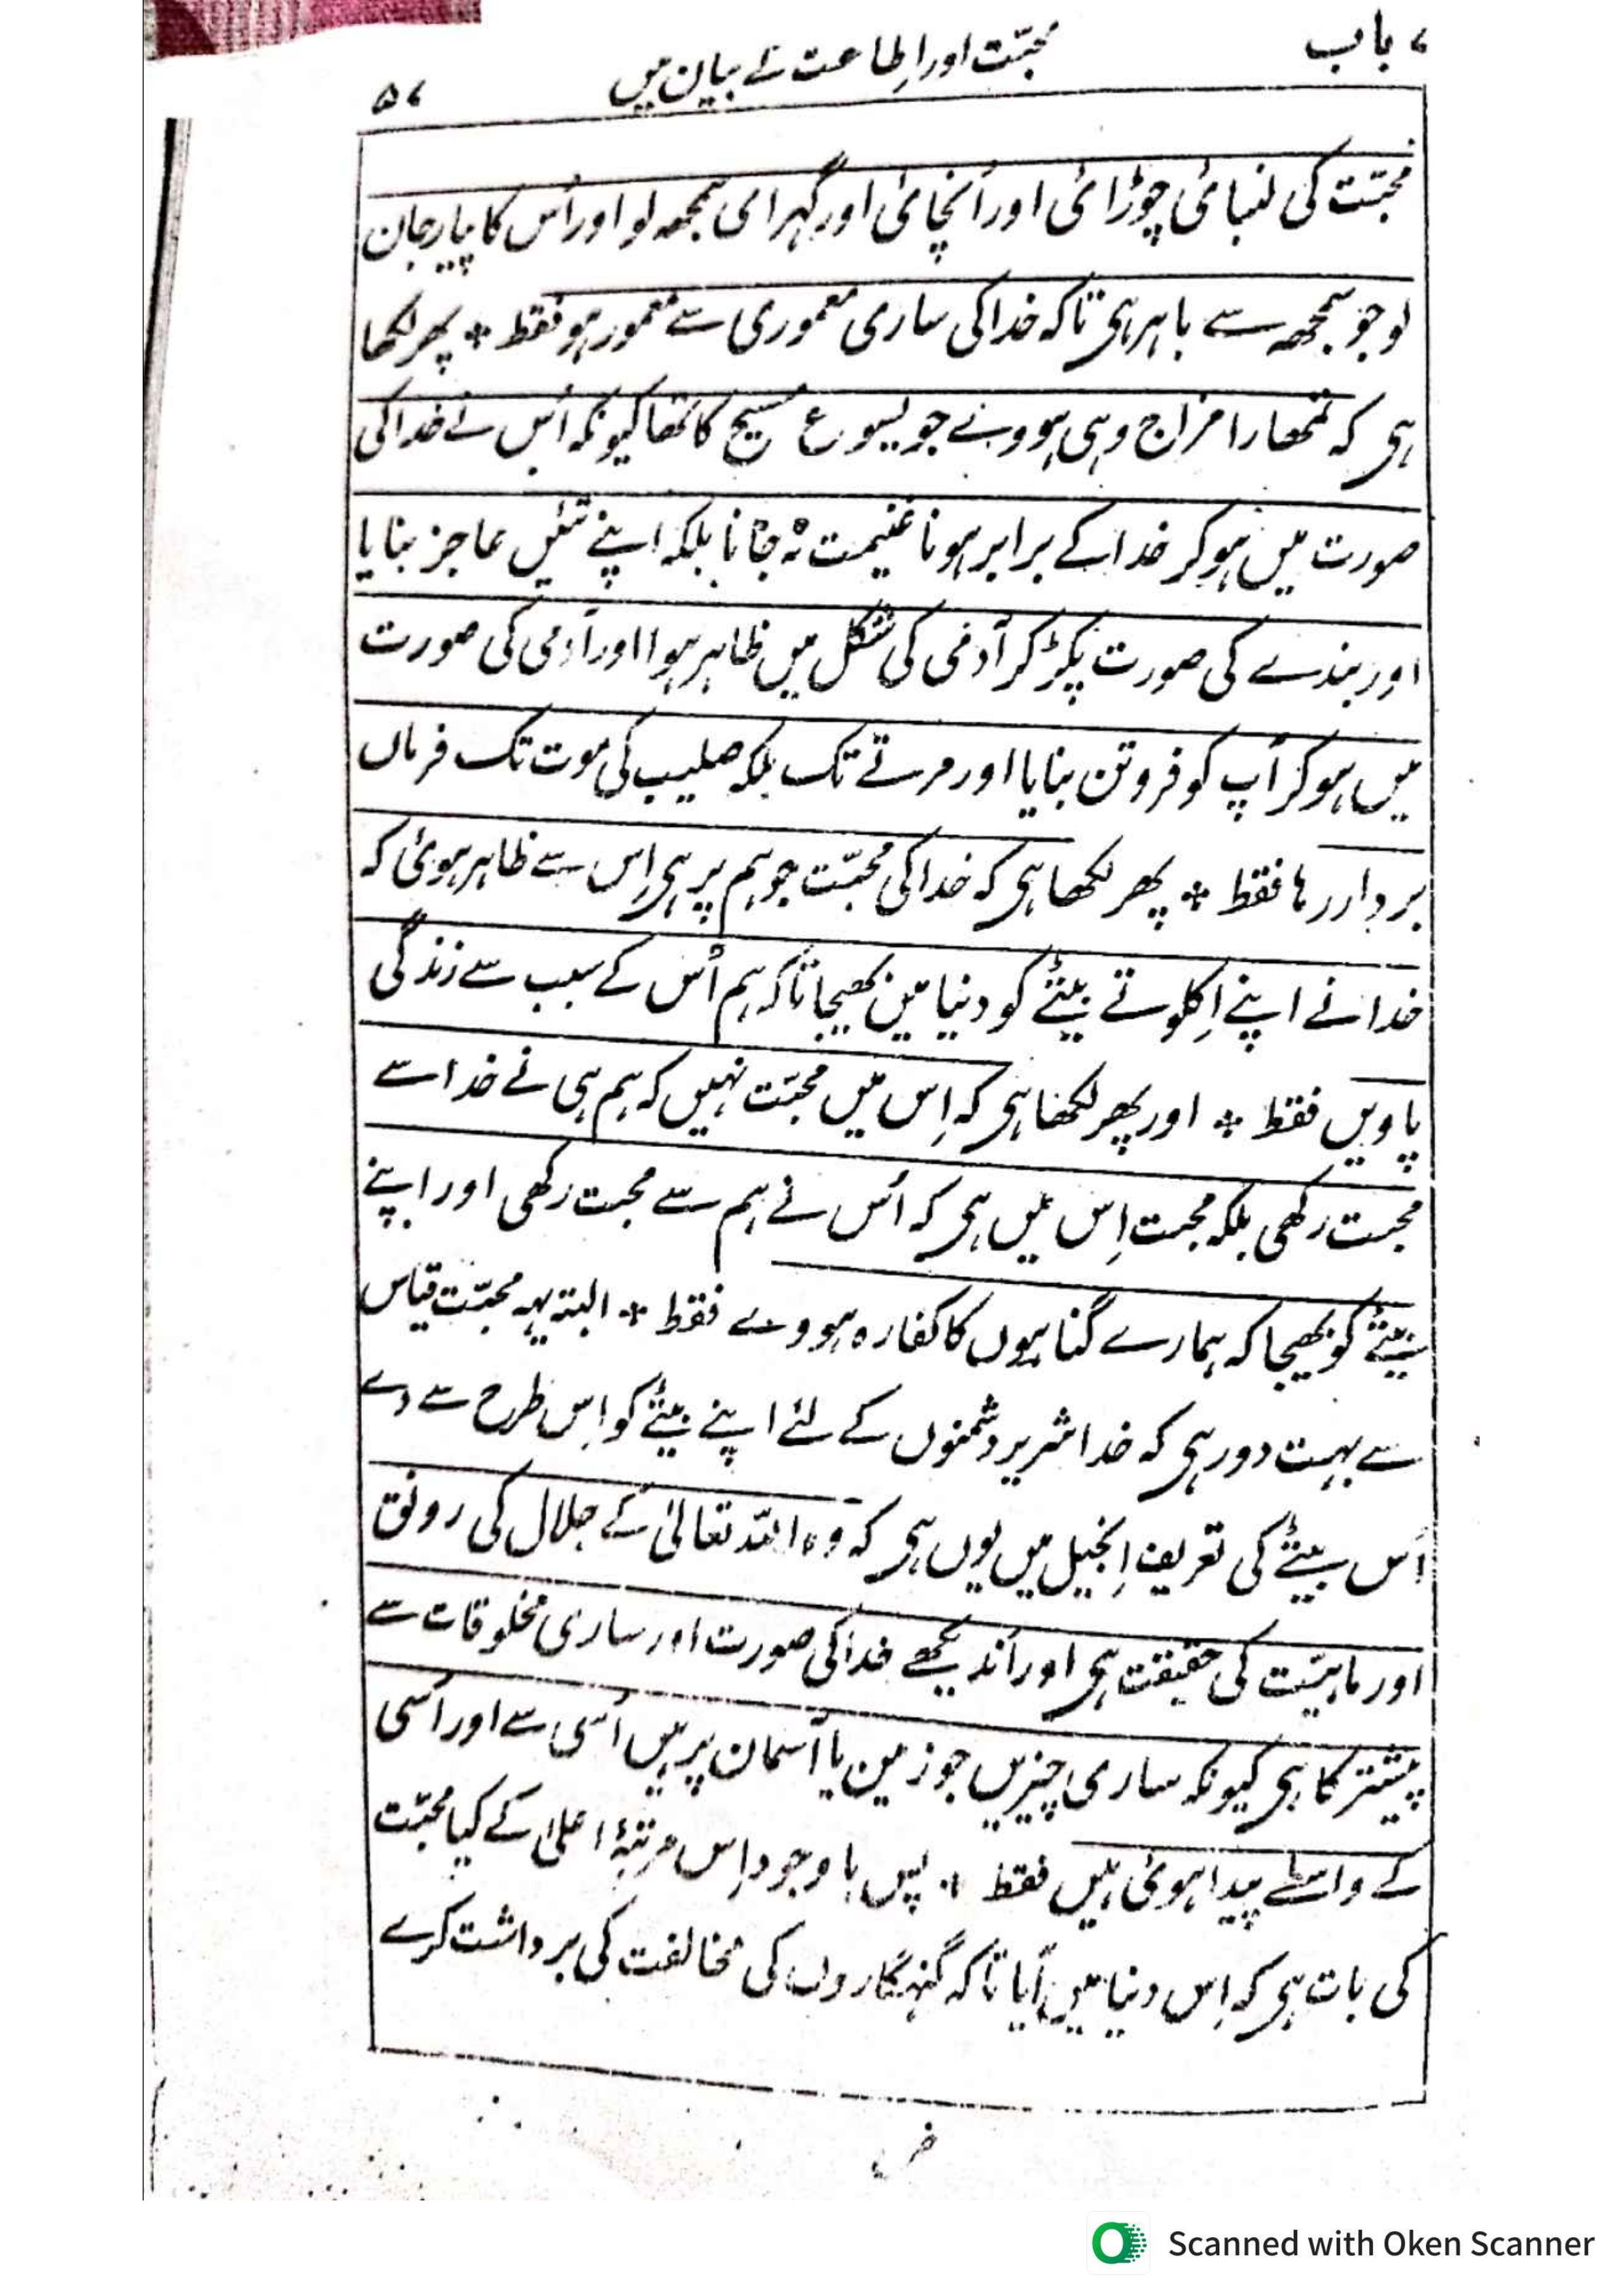 ۷ باب
محبّت اور اِطاعت کے بیان میں
۵۷
محبّت کی لنبائی چوڑائی اور اُنچائی اور گہرای سمجھہ لو اور اُس کا پیار جان
لو جو سمجھہ سے باہر ہی تاکہ خدا کی ساری معموری سے معمور ہو فقط * پھر لکھا
ہی کہ تمھارا مزاج وہی ہووے جو یسوع مسیح کا تھا کیونکہ اُس نے خدا کی
صورت میں ہو کر خدا کے برابر ہونا غنیمت نہ جانا بلکہ اپنے تئیں عاجز بنایا
اور بندے کی صورت پکڑ کر آدمی کی شکل میں ظاہر ہوا اور آدمی کی صورت
میں ہو کر آپ کو فروتن بنایا اور مرتے تک بلکہ صلیب کی موت تک فرماں
بردار رہا فقط * پھر لکھا ہی کہ خدا کی محبّت جو ہم پر ہی اِس سے ظاہر ہوئی کہ
خدا نے اپنے اِکلوتے بیٹے کو دنیا میں بھیجا تاکہ ہم اُس کے سبب سے زندگی
پاویں فقط * اور پھر لکھا ہی کہ اِس میں محبّت نہیں کہ ہم ہی نے خدا سے
محبت رکھی بلکہ محبت اِس میں ہی کہ اُس نے ہم سے محبت رکھی اور اپنے
بیٹے کو بھیجا کہ ہمارے گناہوں کا کفارہ ہووے فقط * البتہ یہہ محبّت قیاس
سے بہت دور ہی کہ خدا شریر دشمنوں کے لئے اپنے بیٹے کو اِس طرح سے دے
اُس بیٹے کی تعریف اِنجیل میں یوں ہی کہ وہ اللہ تعالیٰ کے جلال کی رونق
اور ماہیّت کی حقیقت ہی اور اَندیکھے خدا کی صورت اور ساری مخلوقات سے
پیشتر کا ہی کیونکہ ساری چیزیں جو زمین یا آسمان پر ہیں اُسی سے اور اُسی
کے واسطے پیدا ہوئی ہیں فقط * پس با وجود اِس مرتبۂ اعلیٰ کے کیا محبّت
کی بات ہی کہ اِس دنیا میں آیا تاکہ گنہگاروں کی مخالفت کی برداشت کرے
Scanned with Oken Scanner